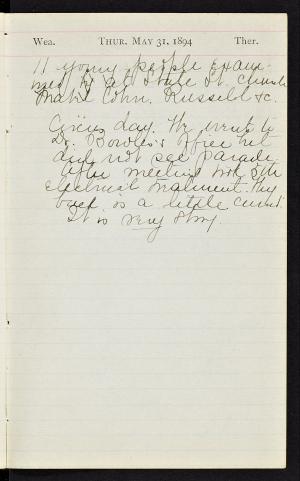 Wea. THUR. MAY 31, 1894 Ther.
11 young people exam-
ined by at State St. Church
Mabel Cohn. Russell &c.
Circus day. We went to
Dr. Bowles's office but
did not see parade
After meeting took 8th
electrical treatment. My
back is a little
It is very